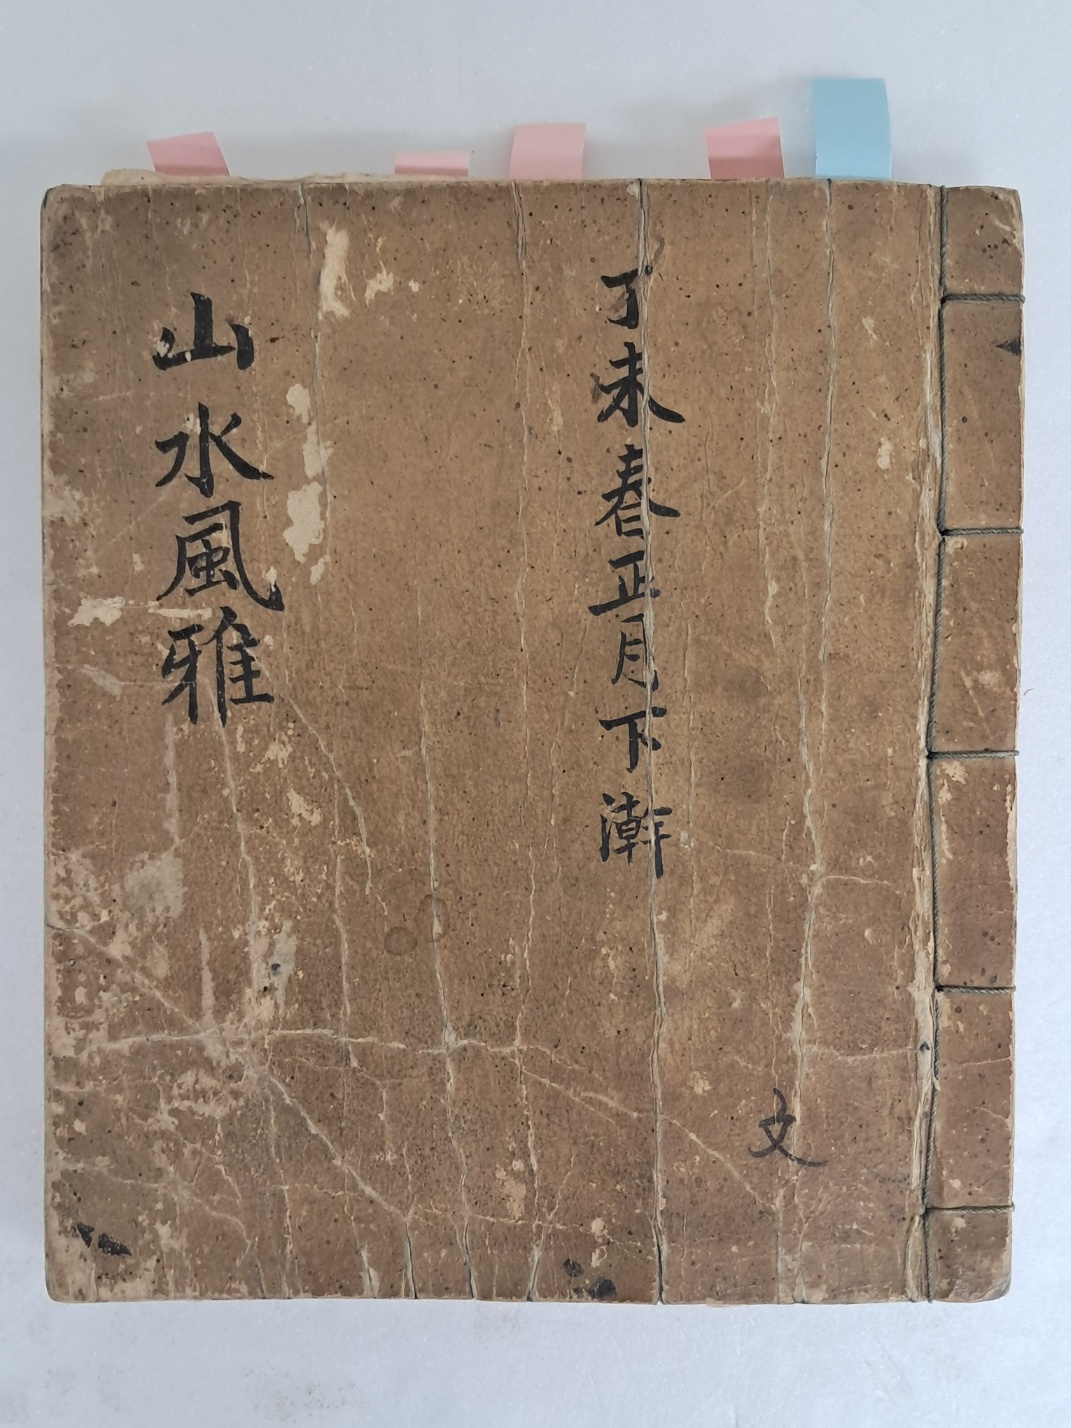 丁未春正月下澣
文
山水風雅